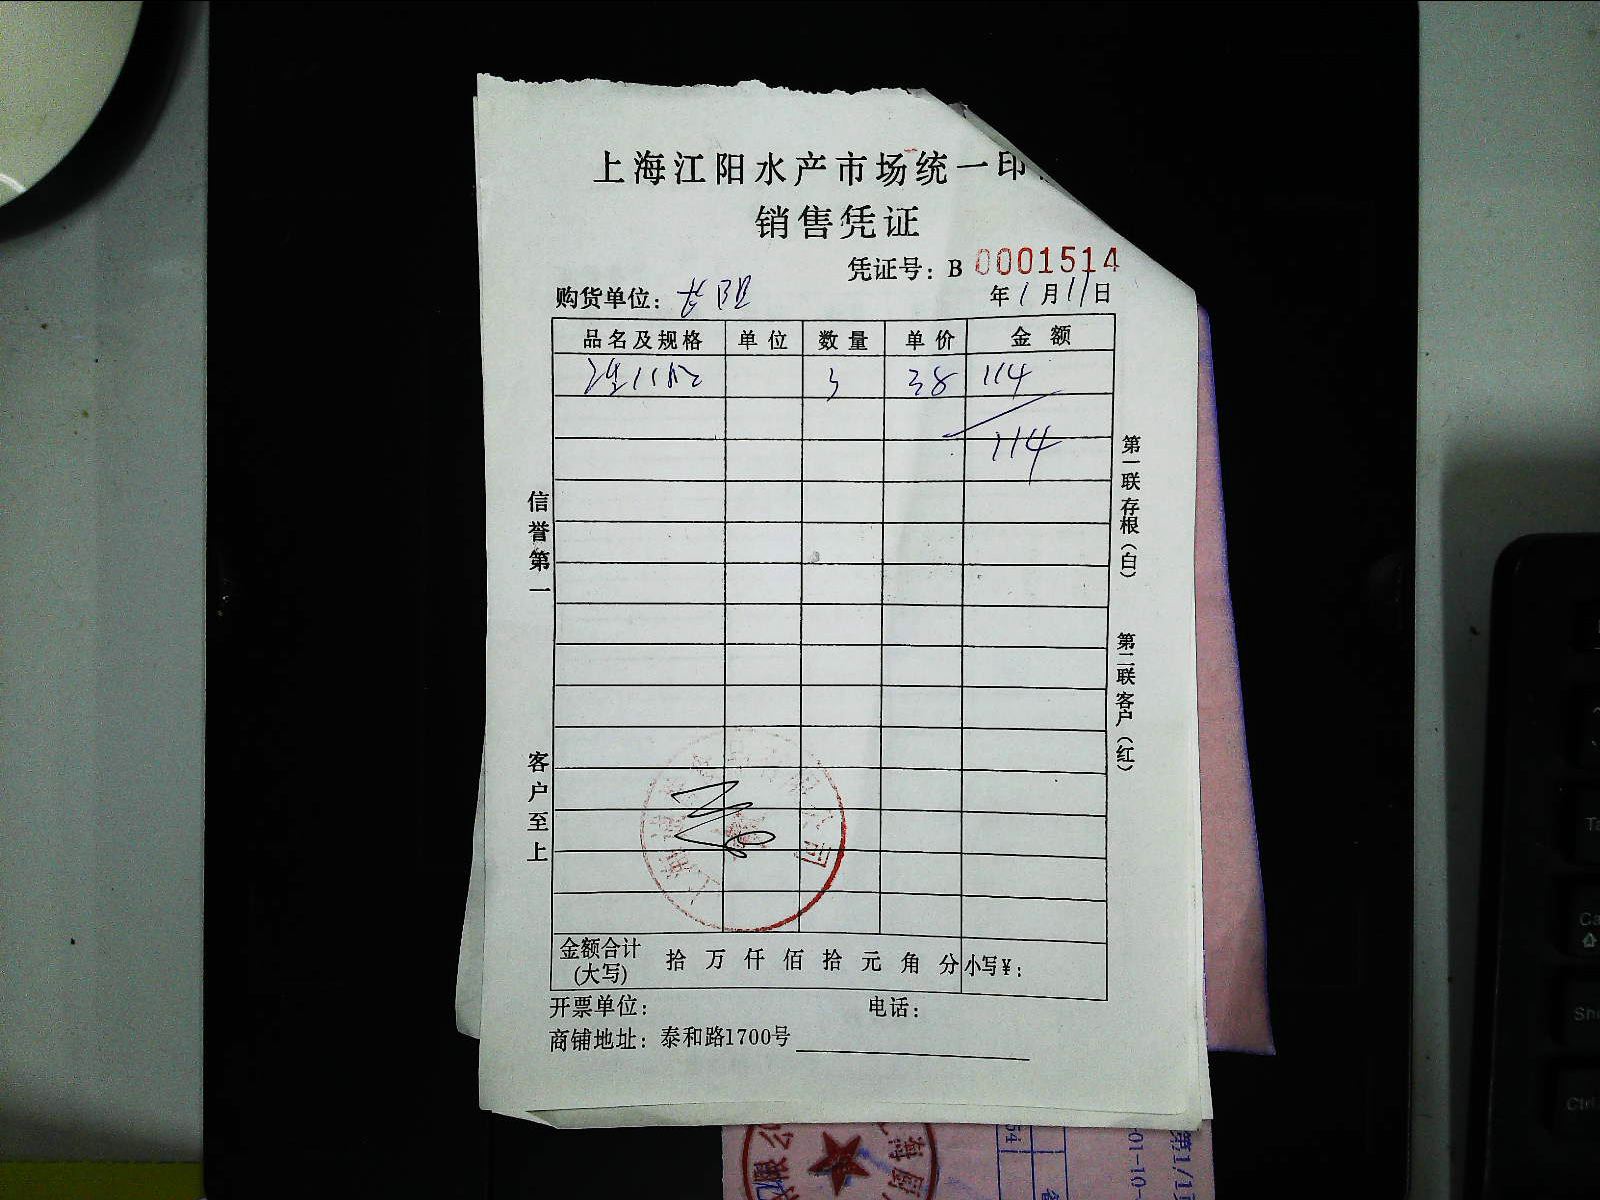 上海江阳水产市场统一印
销售凭证
凭证号：B 0001514
购货单位：
年1月11日
品名及规格 单位 数量 单价 金额
3 38 114
114
信誉第一
客户至上
第一联存根（白）
第二联客户（红）
金额合计（大写） 拾 万 仟 佰 拾 元 角 分 小写¥：
开票单位： 电话：
商铺地址：泰和路1700号